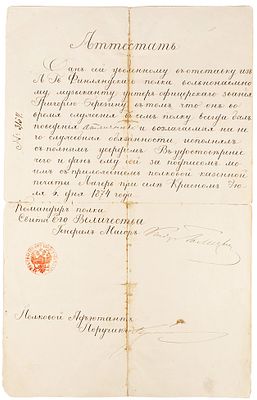 Аттестатъ.
Данъ сей уволенному въ отставку изъ
Л. Гв. Финляндскаго полка вольнонаемно
му музыканту унтеръ-офицерскаго званія
Григорію въ томъ что онъ во
время служенія въ семъ полку всегда былъ
поведенія отличнаго и возлагаемыя на не
го служебныя обязанности, исполнялъ
съ полнымъ усердіемъ. Въ удостовѣреніе
чего и данъ ему сей за подписомъ мо
имъ съ приложеніемъ полковой казенной
печати Лагерь при селѣ Красномъ Ію
ля 4 дня 1874 года.
Командиръ полка
Свиты Его Величества
Генералъ Маіоръ
Полковой Адъютантъ
Поручикъ
№